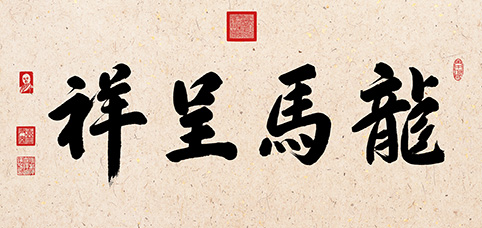 龍馬呈祥